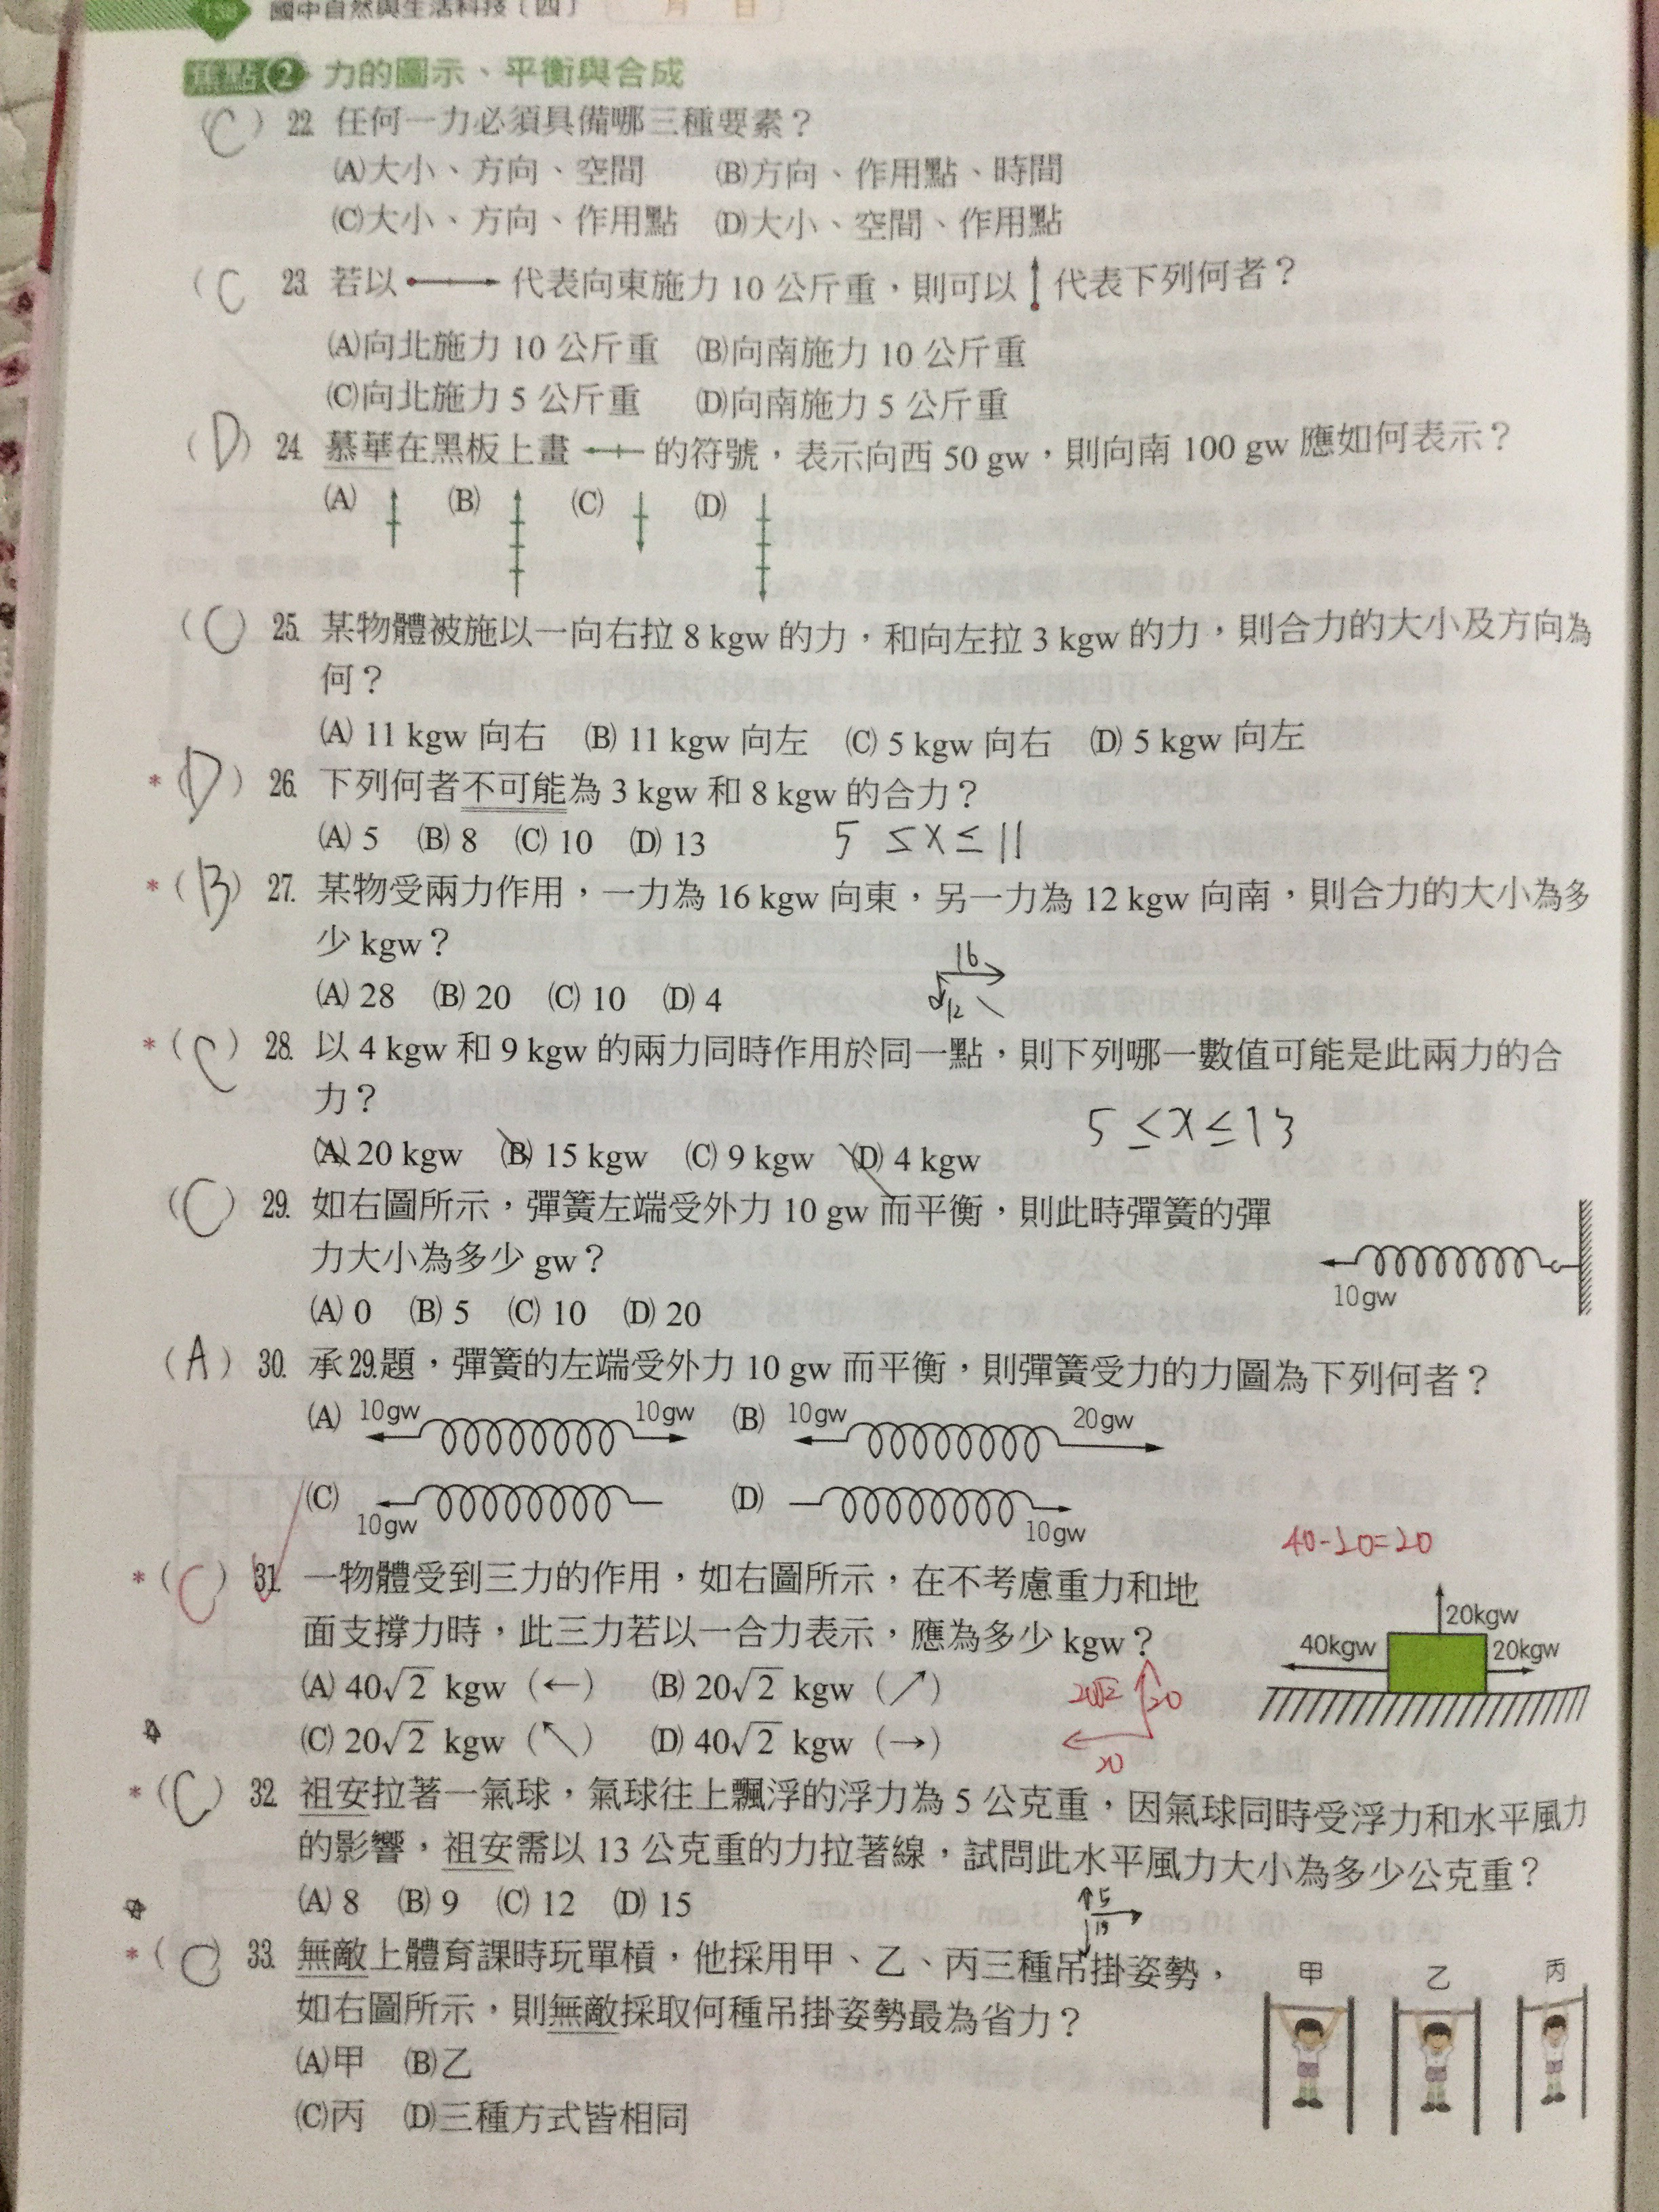 國中自然與生活科技(四) 月 日
焦點2 力的圖示、平衡與合成
(C) 22. 任何一力必須具備哪三種要素？
(A)大小、方向、空間 (B)方向、作用點、時間
(C)大小、方向、作用點 (D)大小、空間、作用點
(C 23. 若以 代表向東施力 10 公斤重，則可以 代表下列何者？
(A)向北施力 10 公斤重 (B)向南施力 10 公斤重
(C)向北施力 5 公斤重 (D)向南施力 5 公斤重
(D) 24. 慕華在黑板上畫 的符號，表示向西 50 gw，則向南 100 gw 應如何表示？
(A) (B) (C) (D)
(C) 25. 某物體被施以一向右拉 8 kgw 的力，和向左拉 3 kgw 的力，則合力的大小及方向為
何？
(A) 11 kgw 向右 (B) 11 kgw 向左 (C) 5 kgw 向右 (D) 5 kgw 向左
*(D) 26. 下列何者不可能為 3 kgw 和 8 kgw 的合力？
(A) 5 (B) 8 (C) 10 (D) 13 5 ≤x≤ 11
*(B) 27. 某物受兩力作用，一力為 16 kgw 向東，另一力為 12 kgw 向南，則合力的大小為多
少 kgw？
16
(A) 28 (B) 20 (C) 10 (D) 4
12
*(C) 28. 以 4 kgw 和 9 kgw 的兩力同時作用於同一點，則下列哪一數值可能是此兩力的合
力？
5 ≤x≤13
(A) 20 kgw (B) 15 kgw (C) 9 kgw (D) 4 kgw
(C) 29. 如右圖所示，彈簧左端受外力 10 gw 而平衡，則此時彈簧的彈
力大小為多少 gw？
10gw
(A) 0 (B) 5 (C) 10 (D) 20
(A) 30. 承29.題，彈簧的左端受外力 10 gw 而平衡，則彈簧受力的力圖為下列何者？
(A) 10gw 10gw (B) 10gw 20gw
(C) 10gw (D) 10gw
40-20=20
*(C) 31. 一物體受到三力的作用，如右圖所示，在不考慮重力和地
面支撐力時，此三力若以一合力表示，應為多少 kgw？
20kgw
40kgw 20kgw
(A) 40√2 kgw (←) (B) 20√2 kgw (↗)
20√2 20
(C) 20√2 kgw (↖) (D) 40√2 kgw (→)
20
*(C) 32. 祖安拉著一氣球，氣球往上飄浮的浮力為 5 公克重，因氣球同時受浮力和水平風力
的影響，祖安需以 13 公克重的力拉著線，試問此水平風力大小為多少公克重？
(A) 8 (B) 9 (C) 12 (D) 15
5
13
*(C) 33. 無敵上體育課時玩單槓，他採用甲、乙、丙三種吊掛姿勢，
如右圖所示，則無敵採取何種吊掛姿勢最為省力？
甲 乙 丙
(A)甲 (B)乙
(C)丙 (D)三種方式皆相同